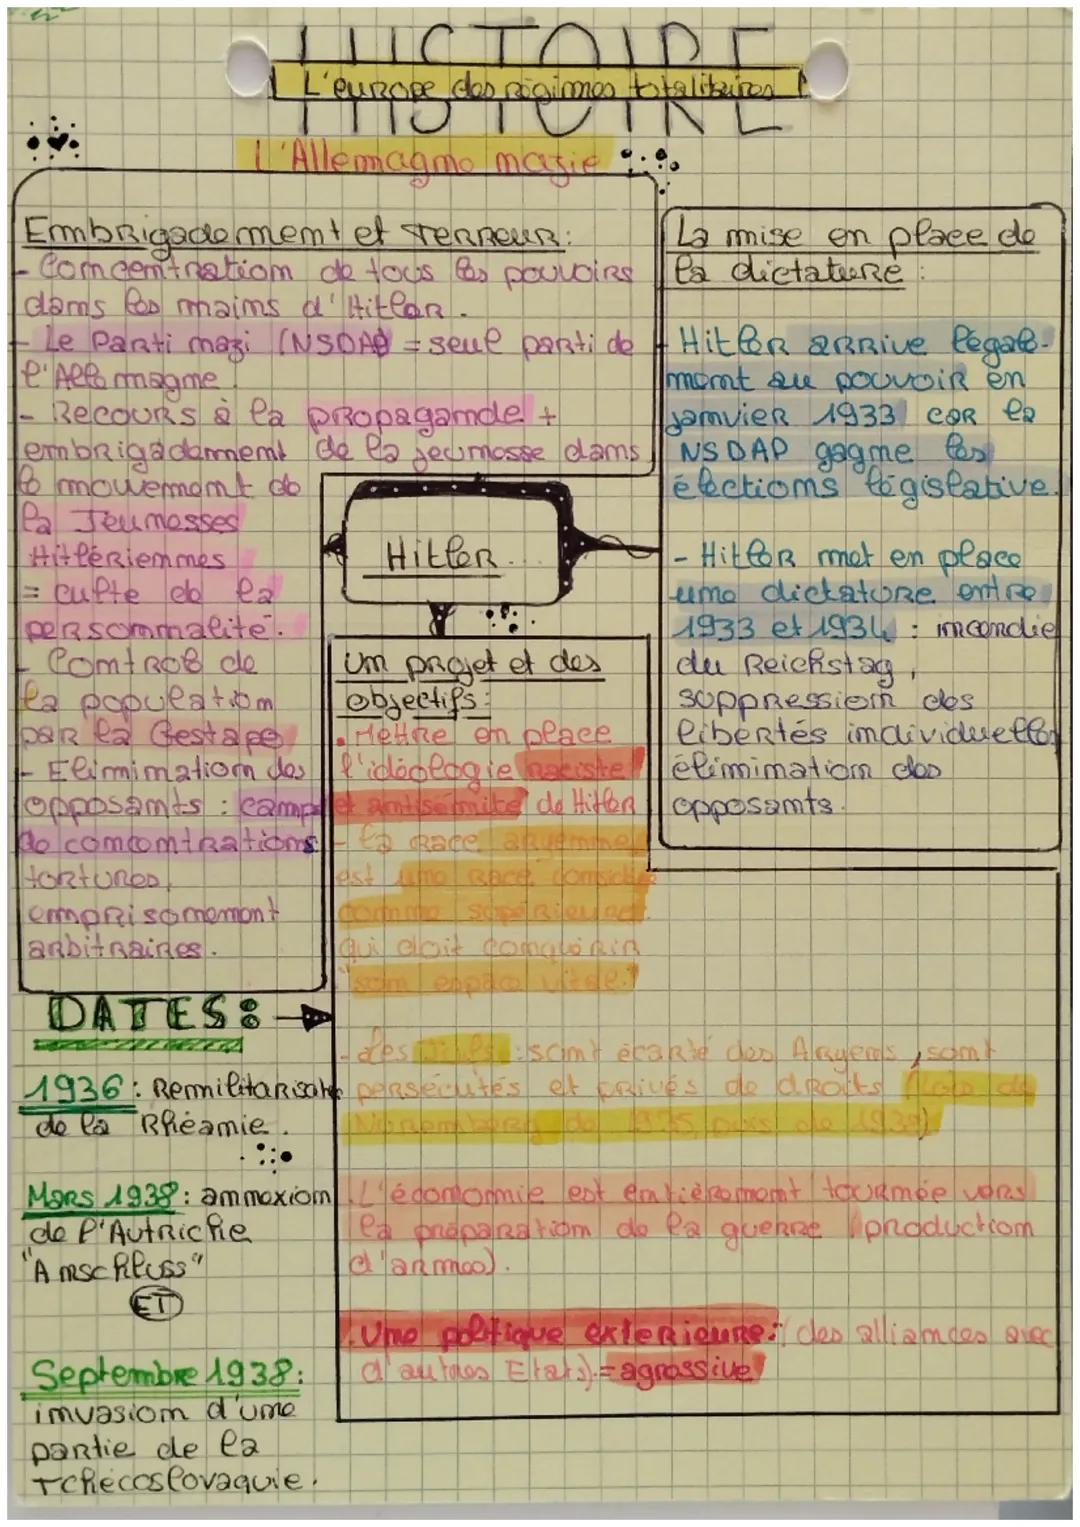 HISTOIRE
L'europe des régimes totalitaires
L'Allemagne nazie
Embrigadement et terreur :
- Concentration de tous les pouvoirs
dans les mains d'Hitler.
- Le Parti nazi (NSDAP = seul parti de
l'Allemagne.
- Recours à la propagande +
embrigadement de la jeunesse dans
le mouvement de
la Jeunesses
Hitlériennes
= culte de la
personnalité.
- Contrôle de
la population
par la Gestapo
- Elimination des
opposants : camps
de concentrations
tortures,
emprisonement
arbitraires.
La mise en place de
la dictature :
- Hitler arrive légale-
ment au pouvoir en
janvier 1933 car la
NSDAP gagne les
élections législative.
- Hitler met en place
une dictature entre
1933 et 1934 : incendie
du Reichstag,
suppression des
libertés individuelles
élimination des
opposants.
Hitler...
Un projet et des
objectifs :
. Mettre en place
l'idéologie raciste
et antisémite de Hitler
- la race aryenne
est une race considér
comme supérieure
qui doit conquérir
"son espace vital"
- Les Juifs : sont écarté des Aryens, sont
persécutés et privés de droits (lois de
Nuremberg de 1935 puis de 1938)
. L'économie est entièrement tournée vers
la préparation de la guerre (production
d'armes).
. Une politique exterieure : (des alliances avec
d'autres Etats) = agressive
DATES :
1936 : Remilitarisation
de la Rhéanie.
Mars 1938 : annexion
de l'Autriche
"Anschluss"
ET
Septembre 1938 :
invasion d'une
partie de la
Tchécoslovaquie.